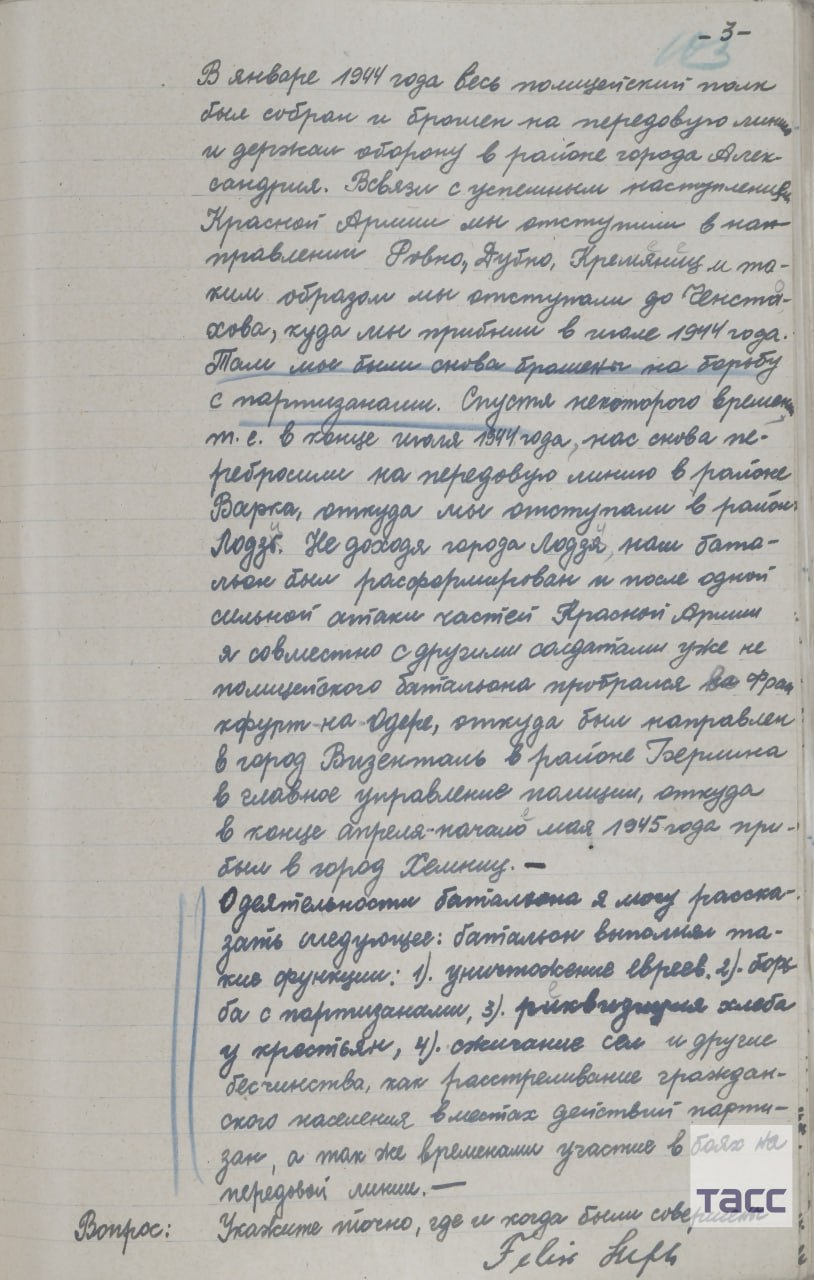 -3-
163
В январе 1944 года весь полицейский полк
был собран и брошен на передовую линию
и держал оборону в районе города Алек-
сандрия. Всвязи с успешным наступлением
Красной Армии мы отступили в нап-
правлении Ровно, Дубно, Кременец и та-
ким образом мы отступали до Ченсто-
хова, куда мы прибыли в июле 1944 года.
Там мы были снова брошены на борьбу
с партизанами. Спустя некоторого времени,
т.е. в конце июля 1944 года, нас снова пе-
ребросили на передовую линию в районе
Варка, откуда мы отступали в район
Лодзй. Не доходя города Лодзй, наш бата-
льон был расформирован и после одной
сильной атаки частей Красной Армии
я совместно с другими солдатами уже не
полицейского батальона пробрался во Фран
кфурт-на Одере, откуда был направлен
в город Визенталь в районе Берлина
в главное управление полиции, откуда
в конце апреля-начале мая 1945 года при-
был в город Хемниц. —
О деятельности батальона я могу расска-
зать следующее: батальон выполнял та-
кие функции: 1). уничтожение евреев. 2). борь
ба с партизанами, 3). реквизиция хлеба
у крестьян, 4). сжигание сел и другие
бесчинства, как расстреливание граждан-
ского населения в местах действий парти-
зан, а так же временами участие в боях на
передовой линии. —
Вопрос: Укажите точно, где и когда были совершены
Felix
ТАСС